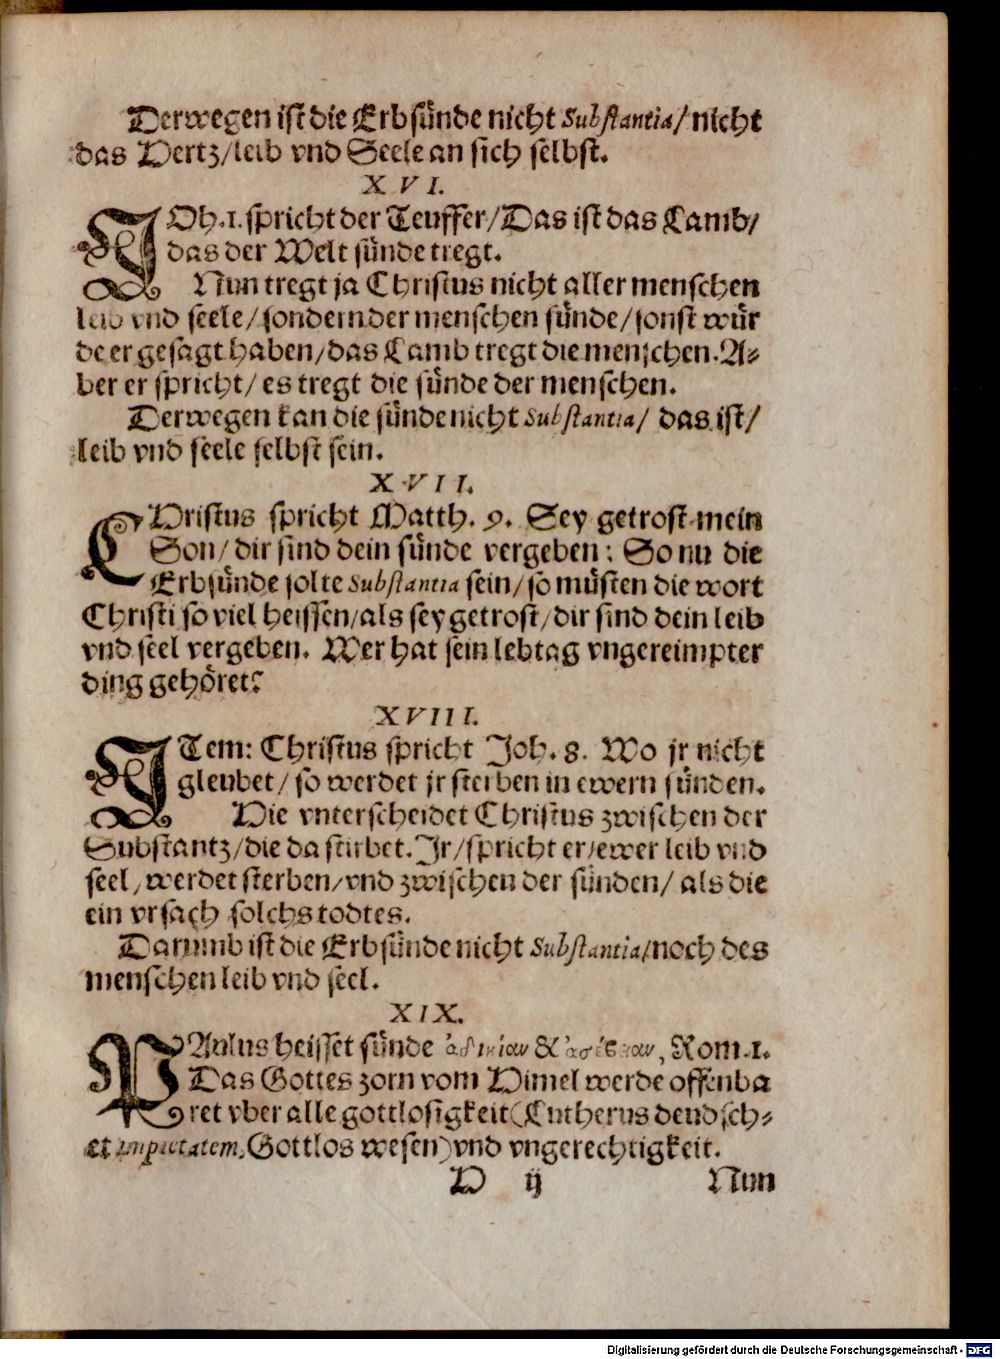 Derwegen ist die Erbsünde nicht Substantia/ nicht
das Hertz/ leib vnd Seele an sich selbst.
XVI.
JOh. 1. spricht der Teuffer/ Das ist das Lamb/
das der Welt sünde tregt.
Nun tregt ja Christus nicht aller menschen
leib vnd seele/ sondern der menschen sünde/ sonst wür
de er gesagt haben/ das Lamb tregt die menschen. A⸗
ber er spricht/ es tregt die sünde der menschen.
Derwegen kan die sünde nicht Substantia/ das ist/
leib vnd seele selbst sein.
XVII.
CHristus spricht Matth. 9. Sey getrost mein
Son/ dir sind dein sünde vergeben: So nu die
Erbsünde solte Substantia sein/ so müsten die wort
Christi so viel heissen/ als sey getrost/ dir sind dein leib
vnd seel vergeben. Wer hat sein lebtag vngereimpter
ding gehöret?
XVIII.
JTem: Christus spricht Joh. 8. Wo jr nicht
gleubet/ so werdet jr sterben in ewern sünden.
Hie vnterscheidet Christus zwischen der
Substantz/ die da stirbet. Jr/ spricht er/ ewer leib vnd
seel/ werdet sterben/ vnd zwischen der sünden/ als die
ein vrsach solchs todtes.
Darumb ist die Erbsünde nicht Substantia/ noch des
menschen leib vnd seel.
XIX.
PAulus heisset sünde ἀδικίαν & ἀσέβειαν, Rom. 1.
Das Gottes zorn vom Himel werde offenba
ret vber alle gottlosigkeit (Lutherus deudsch⸗
et impietatem, Gottlos wesen) vnd vngerechtigkeit.
H ij
Nun
Digitalisierung gefördert durch die Deutsche Forschungsgemeinschaft - DFG